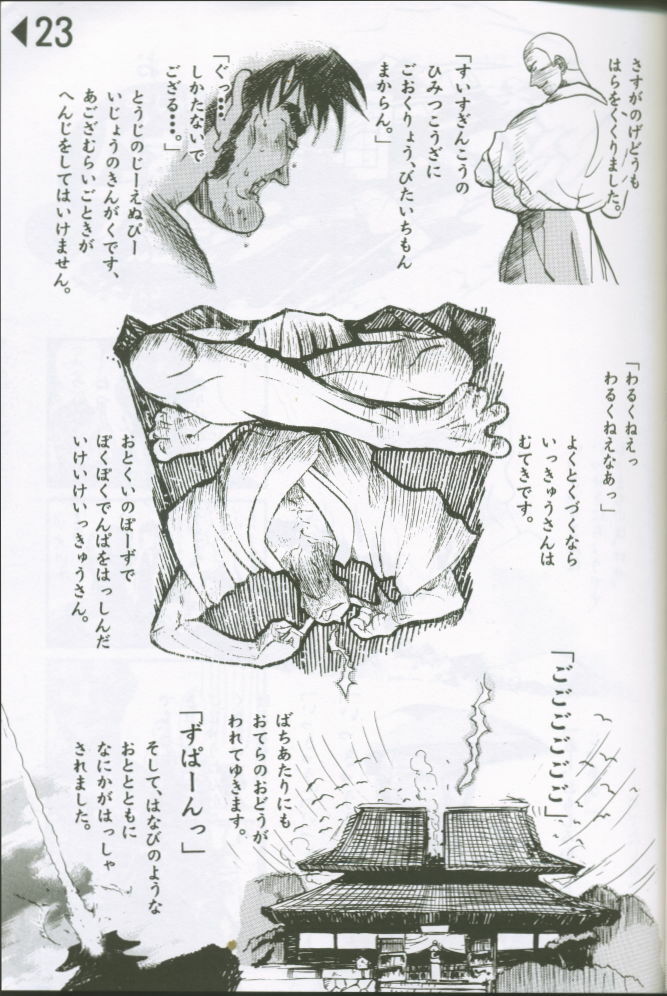 ◀23
さすがのげどうも
はらをくくりました。
「すいすぎんこうの
ひみつこうざに
ごおくりょう、びたいちもん
まからん。」
「ぐっ・・・
しかたないで
ござる・・・。」
とうじのじーえぬぴー
いじょうのきんがくです、
あござむらいごときが
へんじをしてはいけません。
「わるくねえっ
わるくねえなあっ」
よくとくづくなら
いっきゅうさんは
むてきです。
おとくいのぽーずで
ぽくぽくでんぱをはっしんだ
いけいけいっきゅうさん。
「ごごごごごごご」
ばちあたりにも
おてらのおどうが
われてゆきます。
「ずぱーんっ」
そして、はなびのような
おととともに
なにかがはっしゃ
されました。